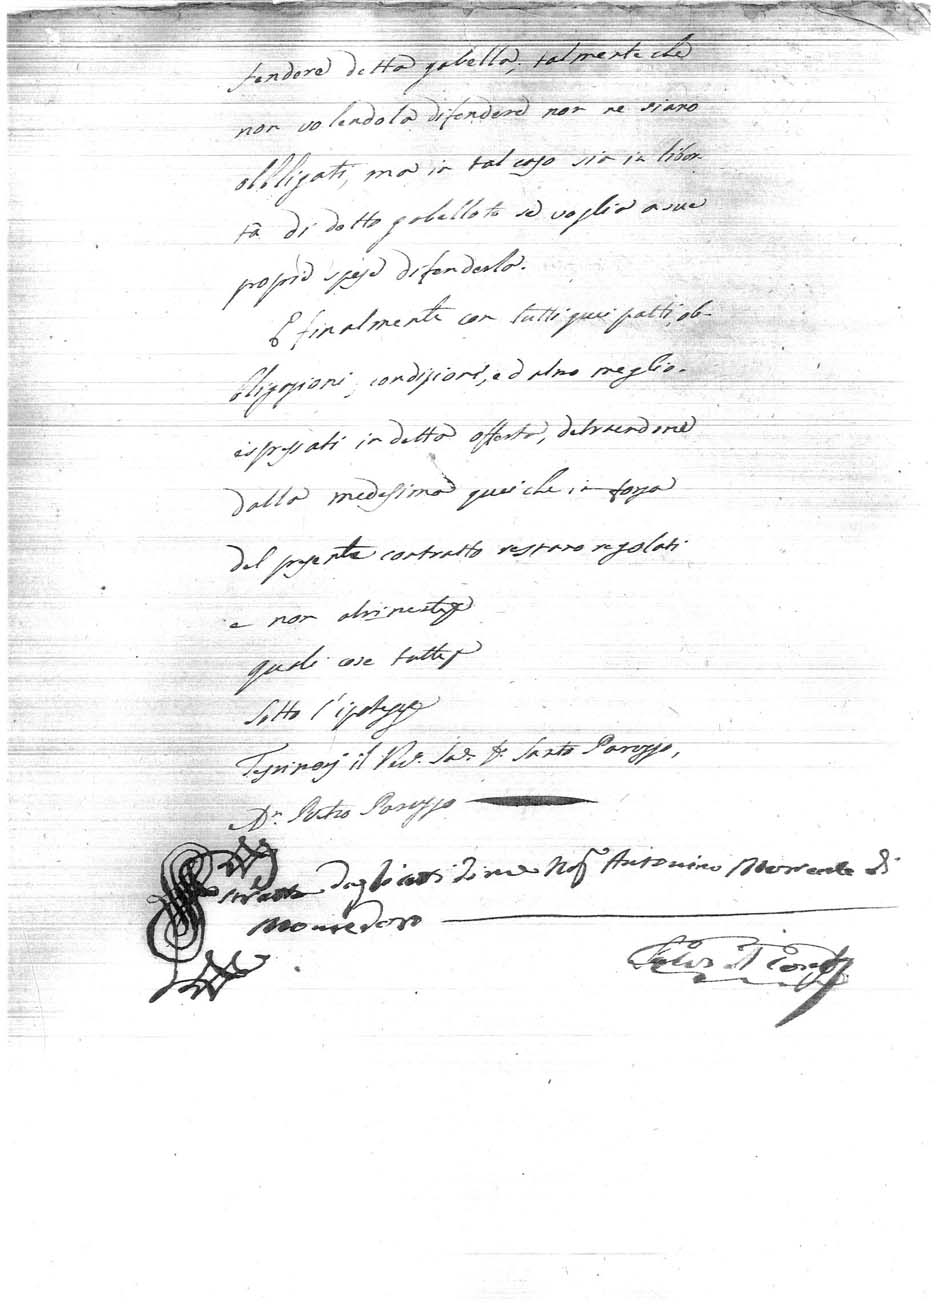 fendere detta gabella, talmente che
non volendola difendere non ne siano
obbligati, ma in tal caso sia in liber-
tà di detto gabelloto se voglia a sue
proprie spese difenderla.
E finalmente con tutti quei patti, ob-
bligazioni, condizioni, ed altro meglio
espressati in detta offerta, detraendone
dalla medesima quei che in forza
del presente contratto restano regolati
e non altrimenti
quali cose tutte
Sotto l'ipoteca
Testimonj il Rev. Sac. D. Santo Paruzzo,
Dn. Pietro Paruzzo
Estratto dagli atti di me Not. Antonino Morreale di
Montedoro